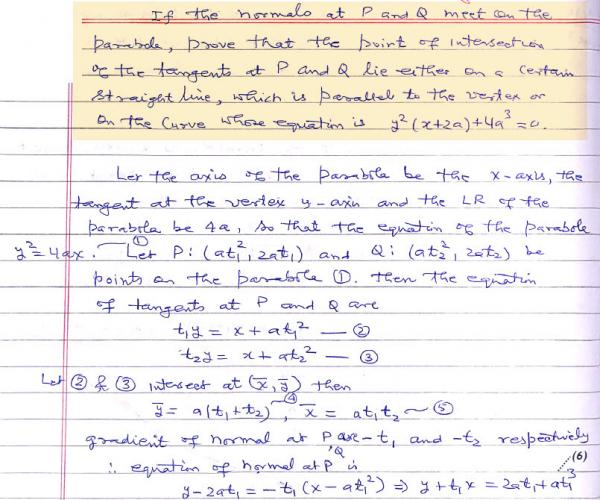 If the normals at P and Q meet on the
parabola, prove that the point of intersection
of the tangents at P and Q lie either on a certain
straight line, which is parallel to the vertex or
on the curve whose equation is y²(x+2a)+4a³=0.
Let the axis of the parabola be the x-axis, the
tangent at the vertex y-axis and the LR of the
parabola be 4a, so that the equation of the parabola
y²=4ax. ① Let P: (at₁², 2at₁) and Q: (at₂², 2at₂) be
points on the parabola ①. Then the equation
of tangents at P and Q are
t₁y = x + at₁² — ②
t₂y = x + at₂² — ③
Let ② & ③ intersect at (x̄, ȳ) then
ȳ = a(t₁+t₂) ④, x̄ = at₁t₂ — ⑤
gradient of normal at P,Q are -t₁ and -t₂ respectively
∴ equation of normal at P is (6)
y-2at₁ = -t₁(x-at₁²) ⇒ y+t₁x = 2at₁+at₁³